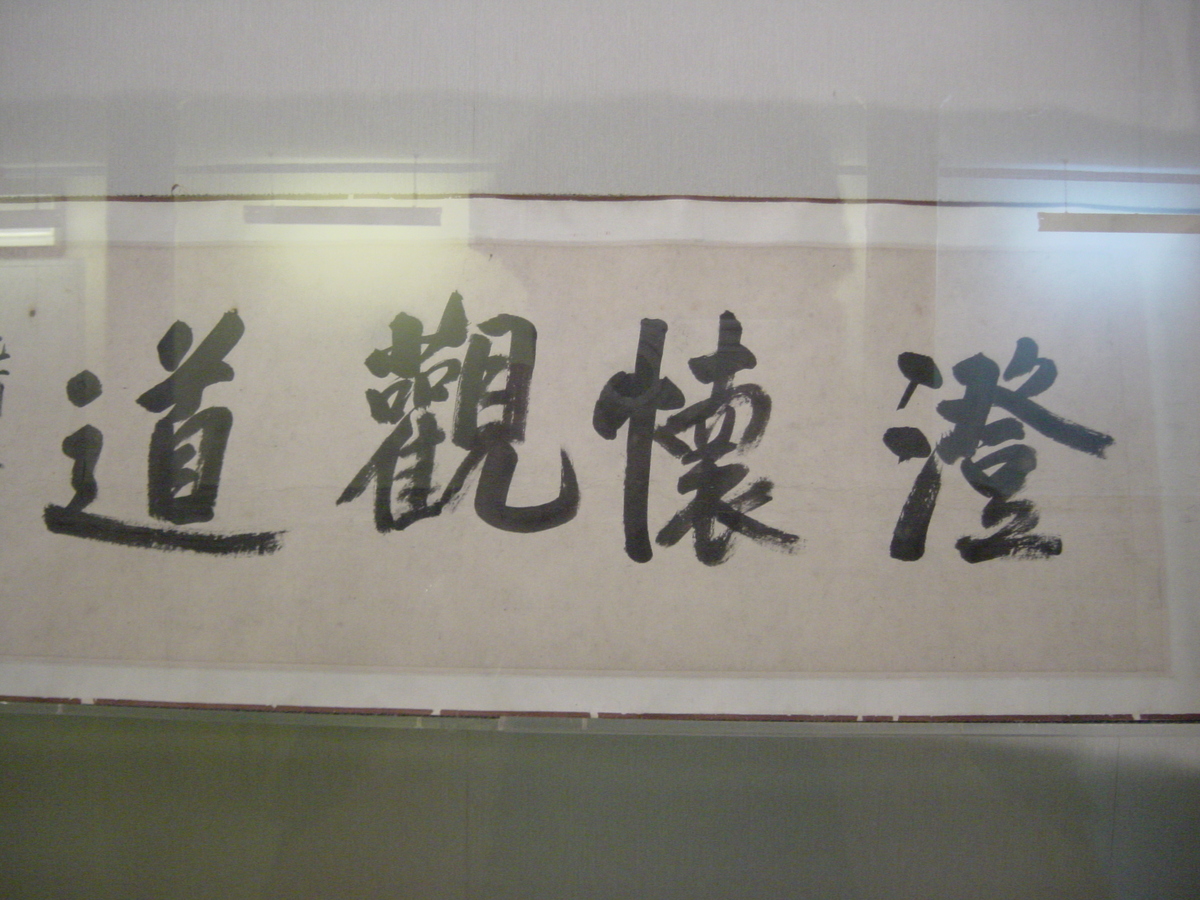 澄懷觀道